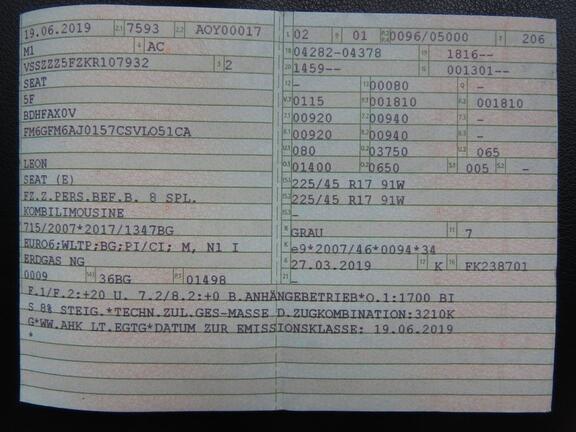 19.06.2019 2.1 7593 2.2 AOY00017
M1 4 AC
VSSZZZ5FZKR107932 3 2
SEAT
5F
BDHFAX0V
FM6GFM6AJ0157CSVLO51CA
LEON
SEAT (E)
FZ.Z.PERS.BEF.B. 8 SPL.
KOMBILIMOUSINE
715/2007*2017/1347BG
EURO6;WLTP;BG;PI/CI; M, N1 I
ERDGAS NG
0009 14.1 36BG P.3 01498
L 02 9 01 P.2/P.4 0096/05000 T 206
18 04282-04378 19 1816--
20 1459-- G 001301--
12 - 13 00080 Q -
V.7 0115 F.1 001810 F.2 001810
7.1 00920 7.2 00940 7.3 -
8.1 00920 8.2 00940 8.3 -
U.1 080 U.2 03750 U.3 065
O.1 01400 O.2 0650 S.1 005 S.2 -
15.1 225/45 R17 91W
15.2 225/45 R17 91W
15.3 -
R GRAU 11 7
K e9*2007/46*0094*34
6 27.03.2019 17 K 16 FK238701
21 -
F.1/F.2:+20 U. 7.2/8.2:+0 B.ANHÄNGEBETRIEB*O.1:1700 BI
S 8% STEIG.*TECHN.ZUL.GES-MASSE D.ZUGKOMBINATION:3210K
G*WW.AHK LT.EGTG*DATUM ZUR EMISSIONSKLASSE: 19.06.2019
*